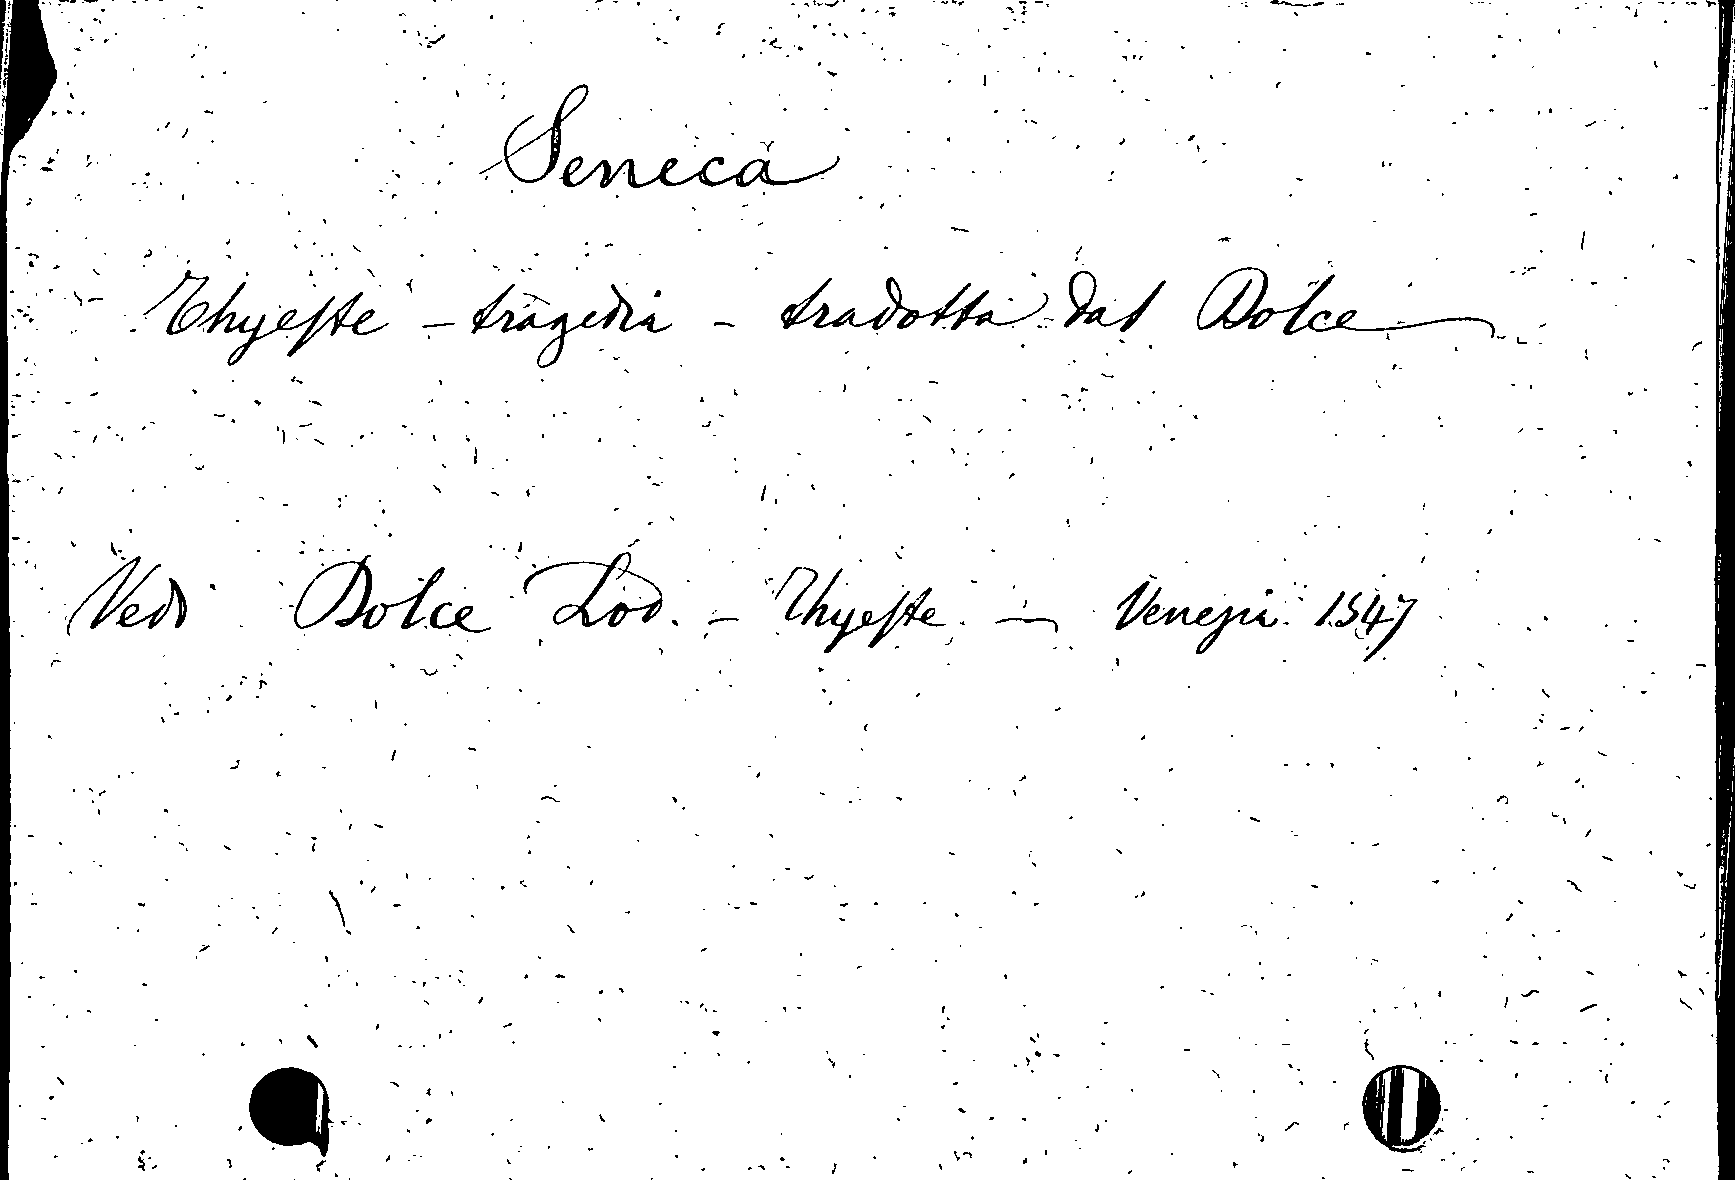 Seneca
Thyeste - tragedia - tradotta dal Dolce
Vedi Dolce Lod. - Thyeste - Venezia 1547